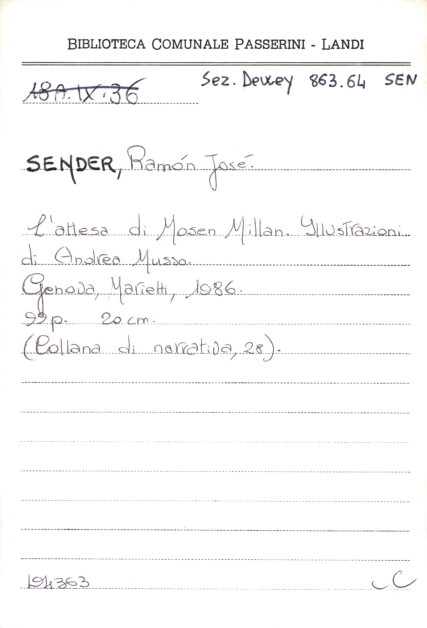 BIBLIOTECA COMUNALE PASSERINI - LANDI
Sez. Dewey 863.64 SEN
18A.IX.36
SENDER, Ramón José.
L'attesa di Mosen Millan. Illustrazioni
di Andrea Musso.
Genova, Marietti, 1986.
99 p. 20 cm.
(Collana di narrativa, 28).
194363
C